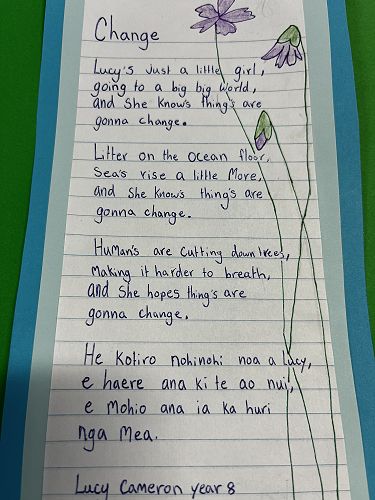 Change
Lucy's Just a little girl,
going to a big big world,
and She Know's thing's are
gonna change.
Litter on the ocean floor,
Sea's rise a little More,
and She knows thing's are
gonna change.
Human's are Cutting down trees,
Making it harder to breath,
and She hopes thing's are
gonna change.
He Kotiro nohinohi noa a Lucy,
e haere ana ki te ao nui,
e Mohio ana ia ka huri
nga Mea.
Lucy Cameron year 8